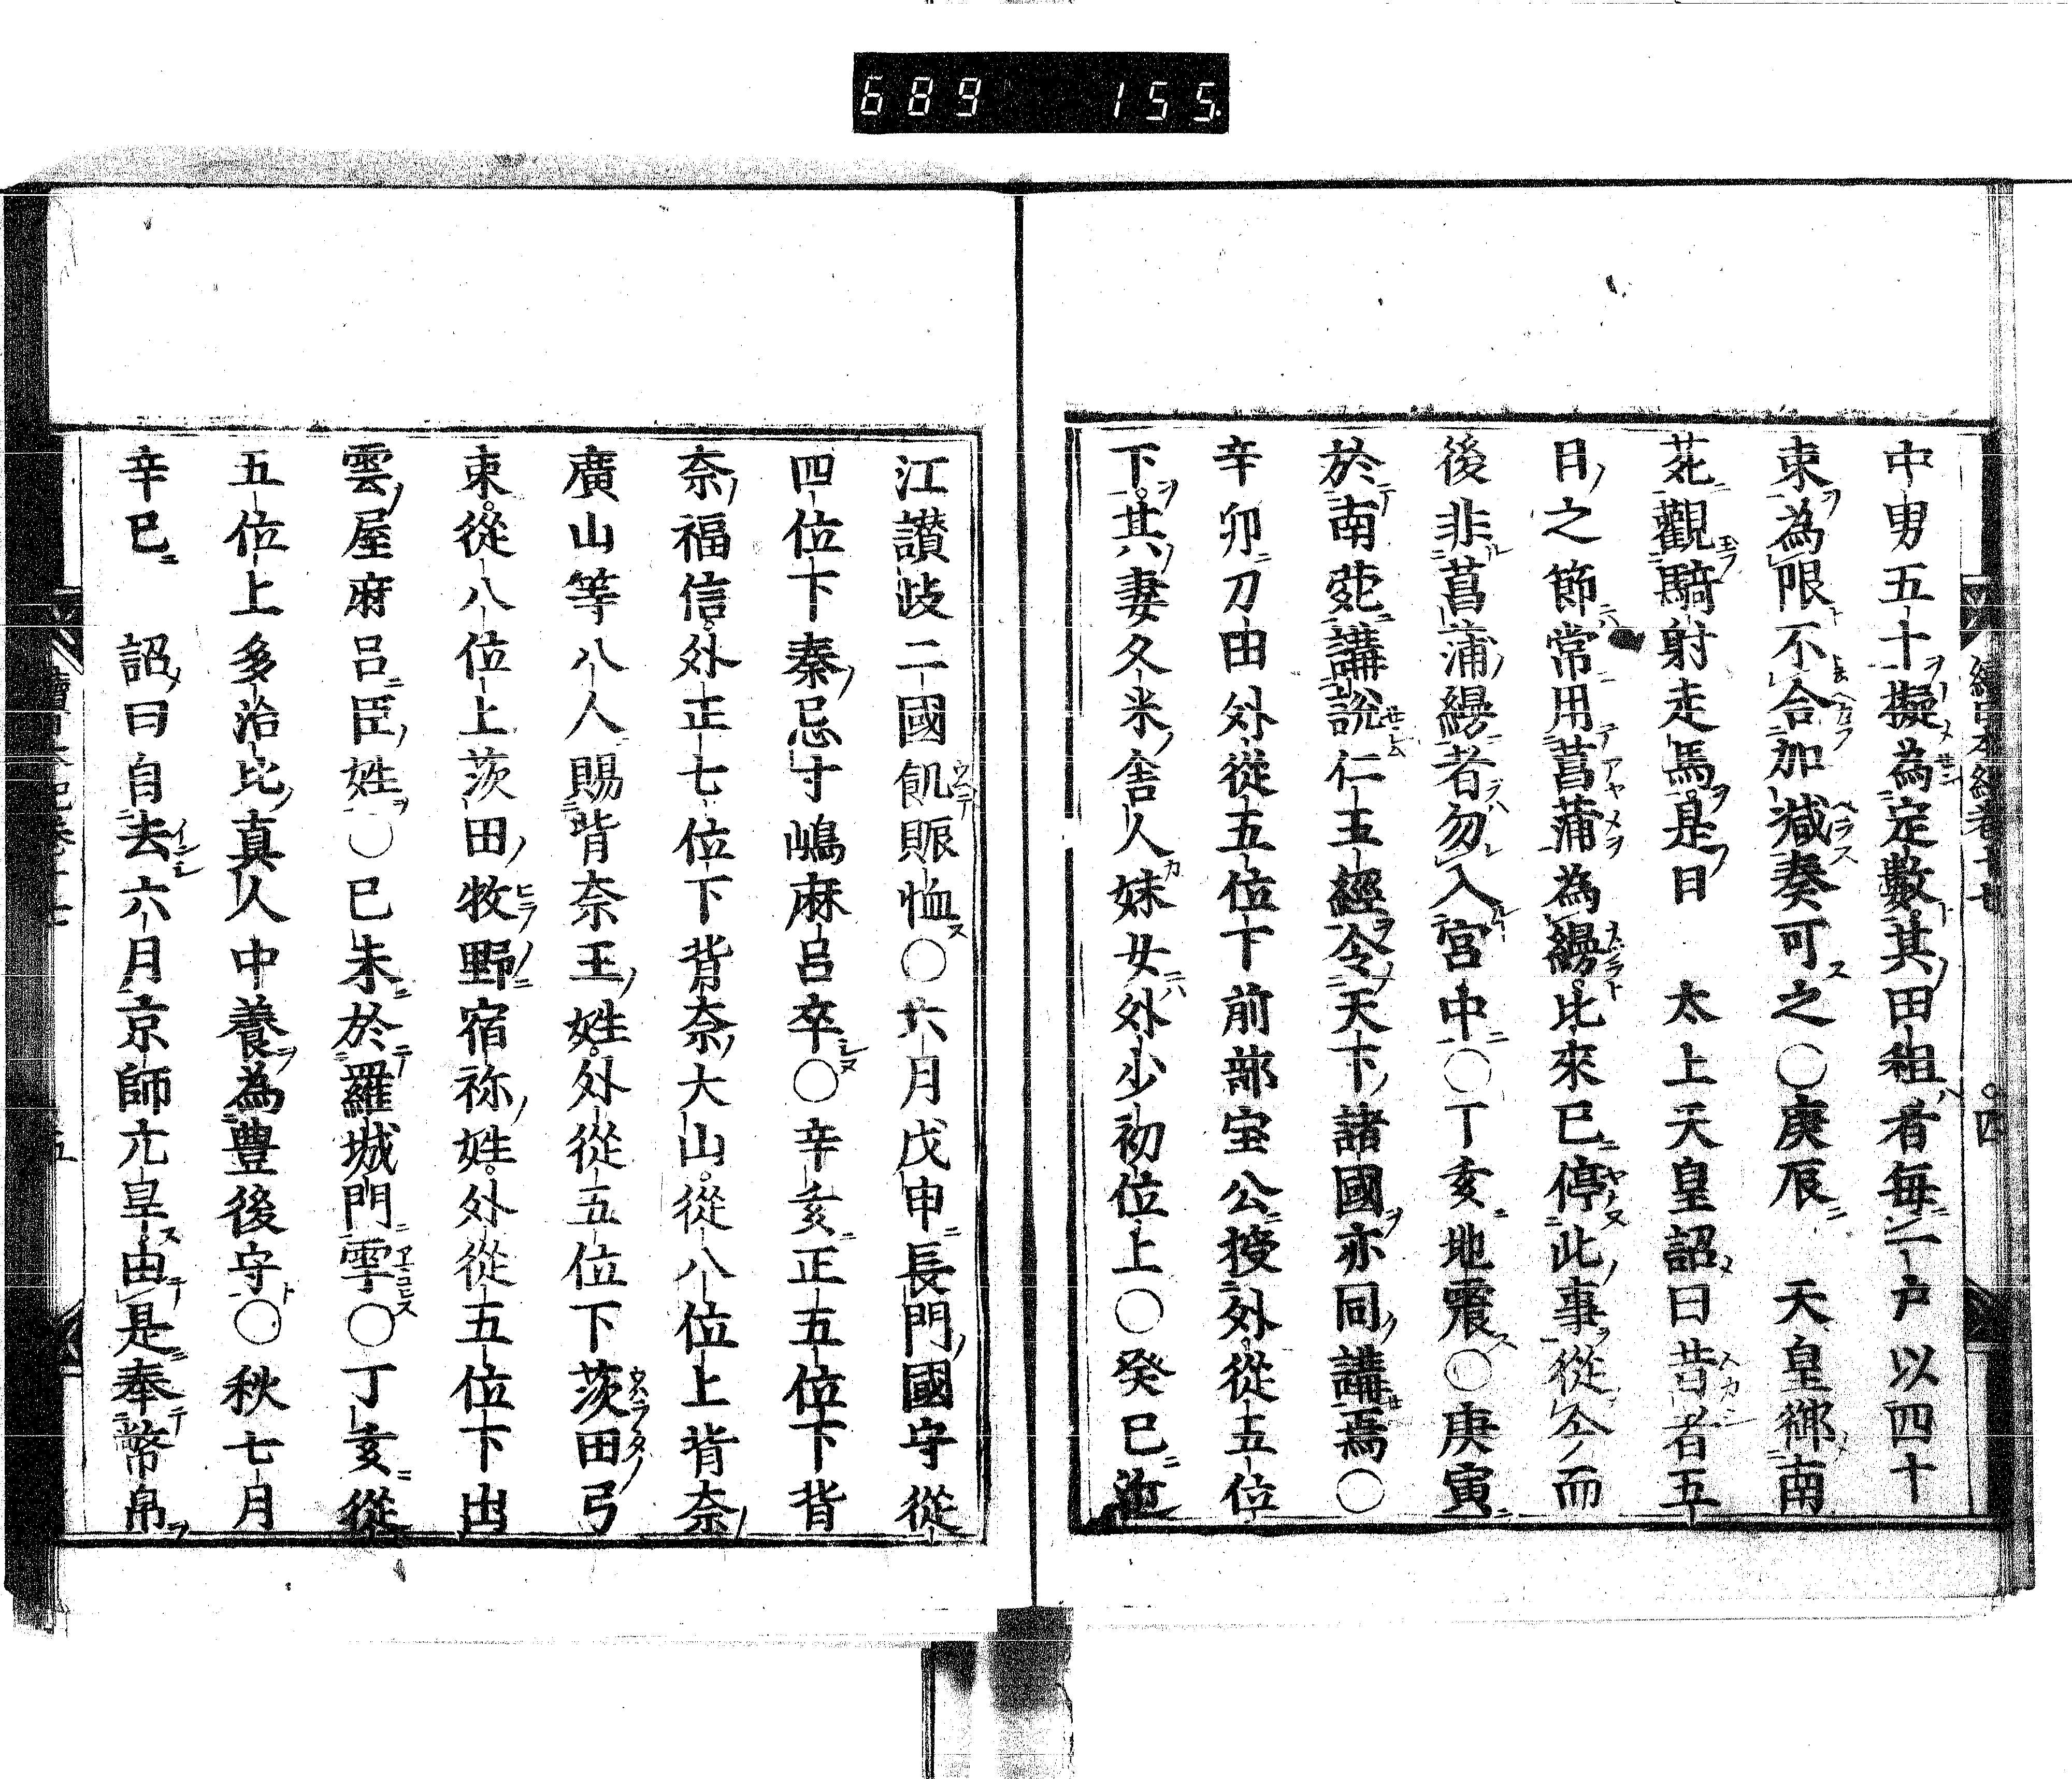 689 155
中男五十擬為定數其田租者毎一戸以四十
束為限不合加減奏可之〇庚辰 天皇御南
苑觀騎射走馬是日 太上天皇詔曰昔者五
日之節常用菖蒲為縵比來已停此事從今而
後非菖蒲縵者勿入宮中〇丁亥地震〇庚寅
於南苑講說仁王經令天下諸國亦同講焉〇
辛卯力田外從五位下前部宝公授外從五位
下其妻久米舍人妹女外少初位上〇癸巳近
江讃岐二國飢賑恤〇六月戊申長門國守從
四位下秦忌寸嶋麻呂卒〇辛亥正五位下背
奈福信外正七位下背奈大山從八位上背奈
廣山等八人賜背奈王姓外從五位下茨田弓
束從八位上茨田牧野宿祢姓外從五位下出
雲屋麻呂臣姓〇己未於羅城門雩〇丁亥從
五位上多治比真人中養為豊後守〇秋七月
辛巳 詔曰自去六月京師亢旱由是奉幣帛